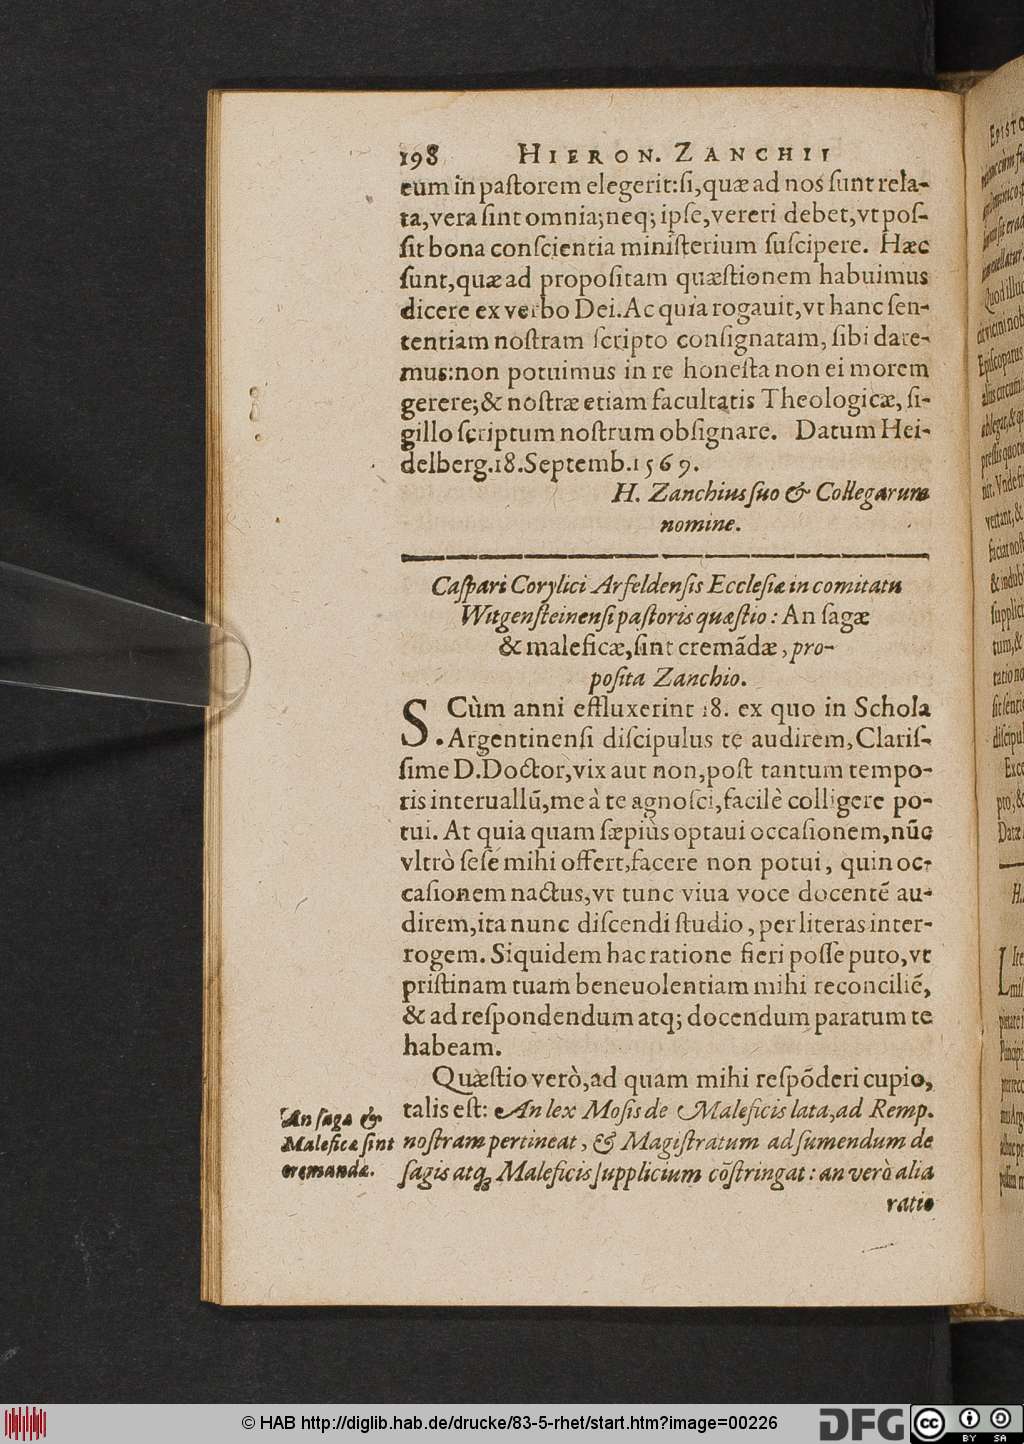 198 HIERON. ZANCHII
eum in pastorem elegerit: si, quæ ad nos sunt rela-
ta, vera sint omnia; neq; ipse, vereri debet, vt pos-
sit bona conscientia ministerium suscipere. Hæc
sunt, quæ ad propositam quæstionem habuimus
dicere ex verbo Dei. Ac quia rogauit, vt hanc sen-
tentiam nostram scripto consignatam, sibi dare-
mus: non potuimus in re honesta non ei morem
gerere; & nostræ etiam facultatis Theologicæ, si-
gillo scriptum nostrum obsignare. Datum Hei-
delberg. 18. Septemb. 1569.
H. Zanchius suo & Collegarum
nomine.
Caspari Corylici Arfeldensis Ecclesiæ in comitatu
Witgensteinensi pastoris quæstio: An sagæ
& maleficæ, sint cremãdæ, pro-
posita Zanchio.
S. Cùm anni effluxerint 18. ex quo in Schola
Argentinensi discipulus te audirem, Claris-
sime D. Doctor, vix aut non, post tantum tempo-
ris interuallũ, me à te agnosci, facilè colligere po-
tui. At quia quam sæpiùs optaui occasionem, nũc
vltrò sese mihi offert, facere non potui, quin oc-
casionem nactus, vt tunc viua voce docentẽ au-
direm, ita nunc discendi studio, per literas inter-
rogem. Siquidem hac ratione fieri posse puto, vt
pristinam tuam beneuolentiam mihi reconciliẽ,
& ad respondendum atq; docendum paratum te
habeam.
Quæstio verò, ad quam mihi respõderi cupio,
talis est: An lex Mosis de Maleficis lata, ad Remp.
nostram pertineat, & Magistratum ad sumendum de
sagis atq; Maleficis supplicium cõstringat: an verò alia
ratio
An sagæ &
Maleficæ sint
cremandæ.
© HAB http://diglib.hab.de/drucke/83-5-rhet/start.htm?image=00226
DFG
cc
BY SA